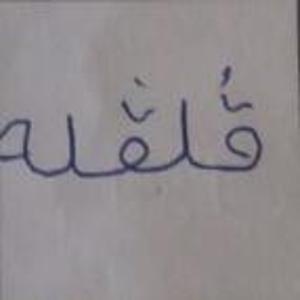 قلقله